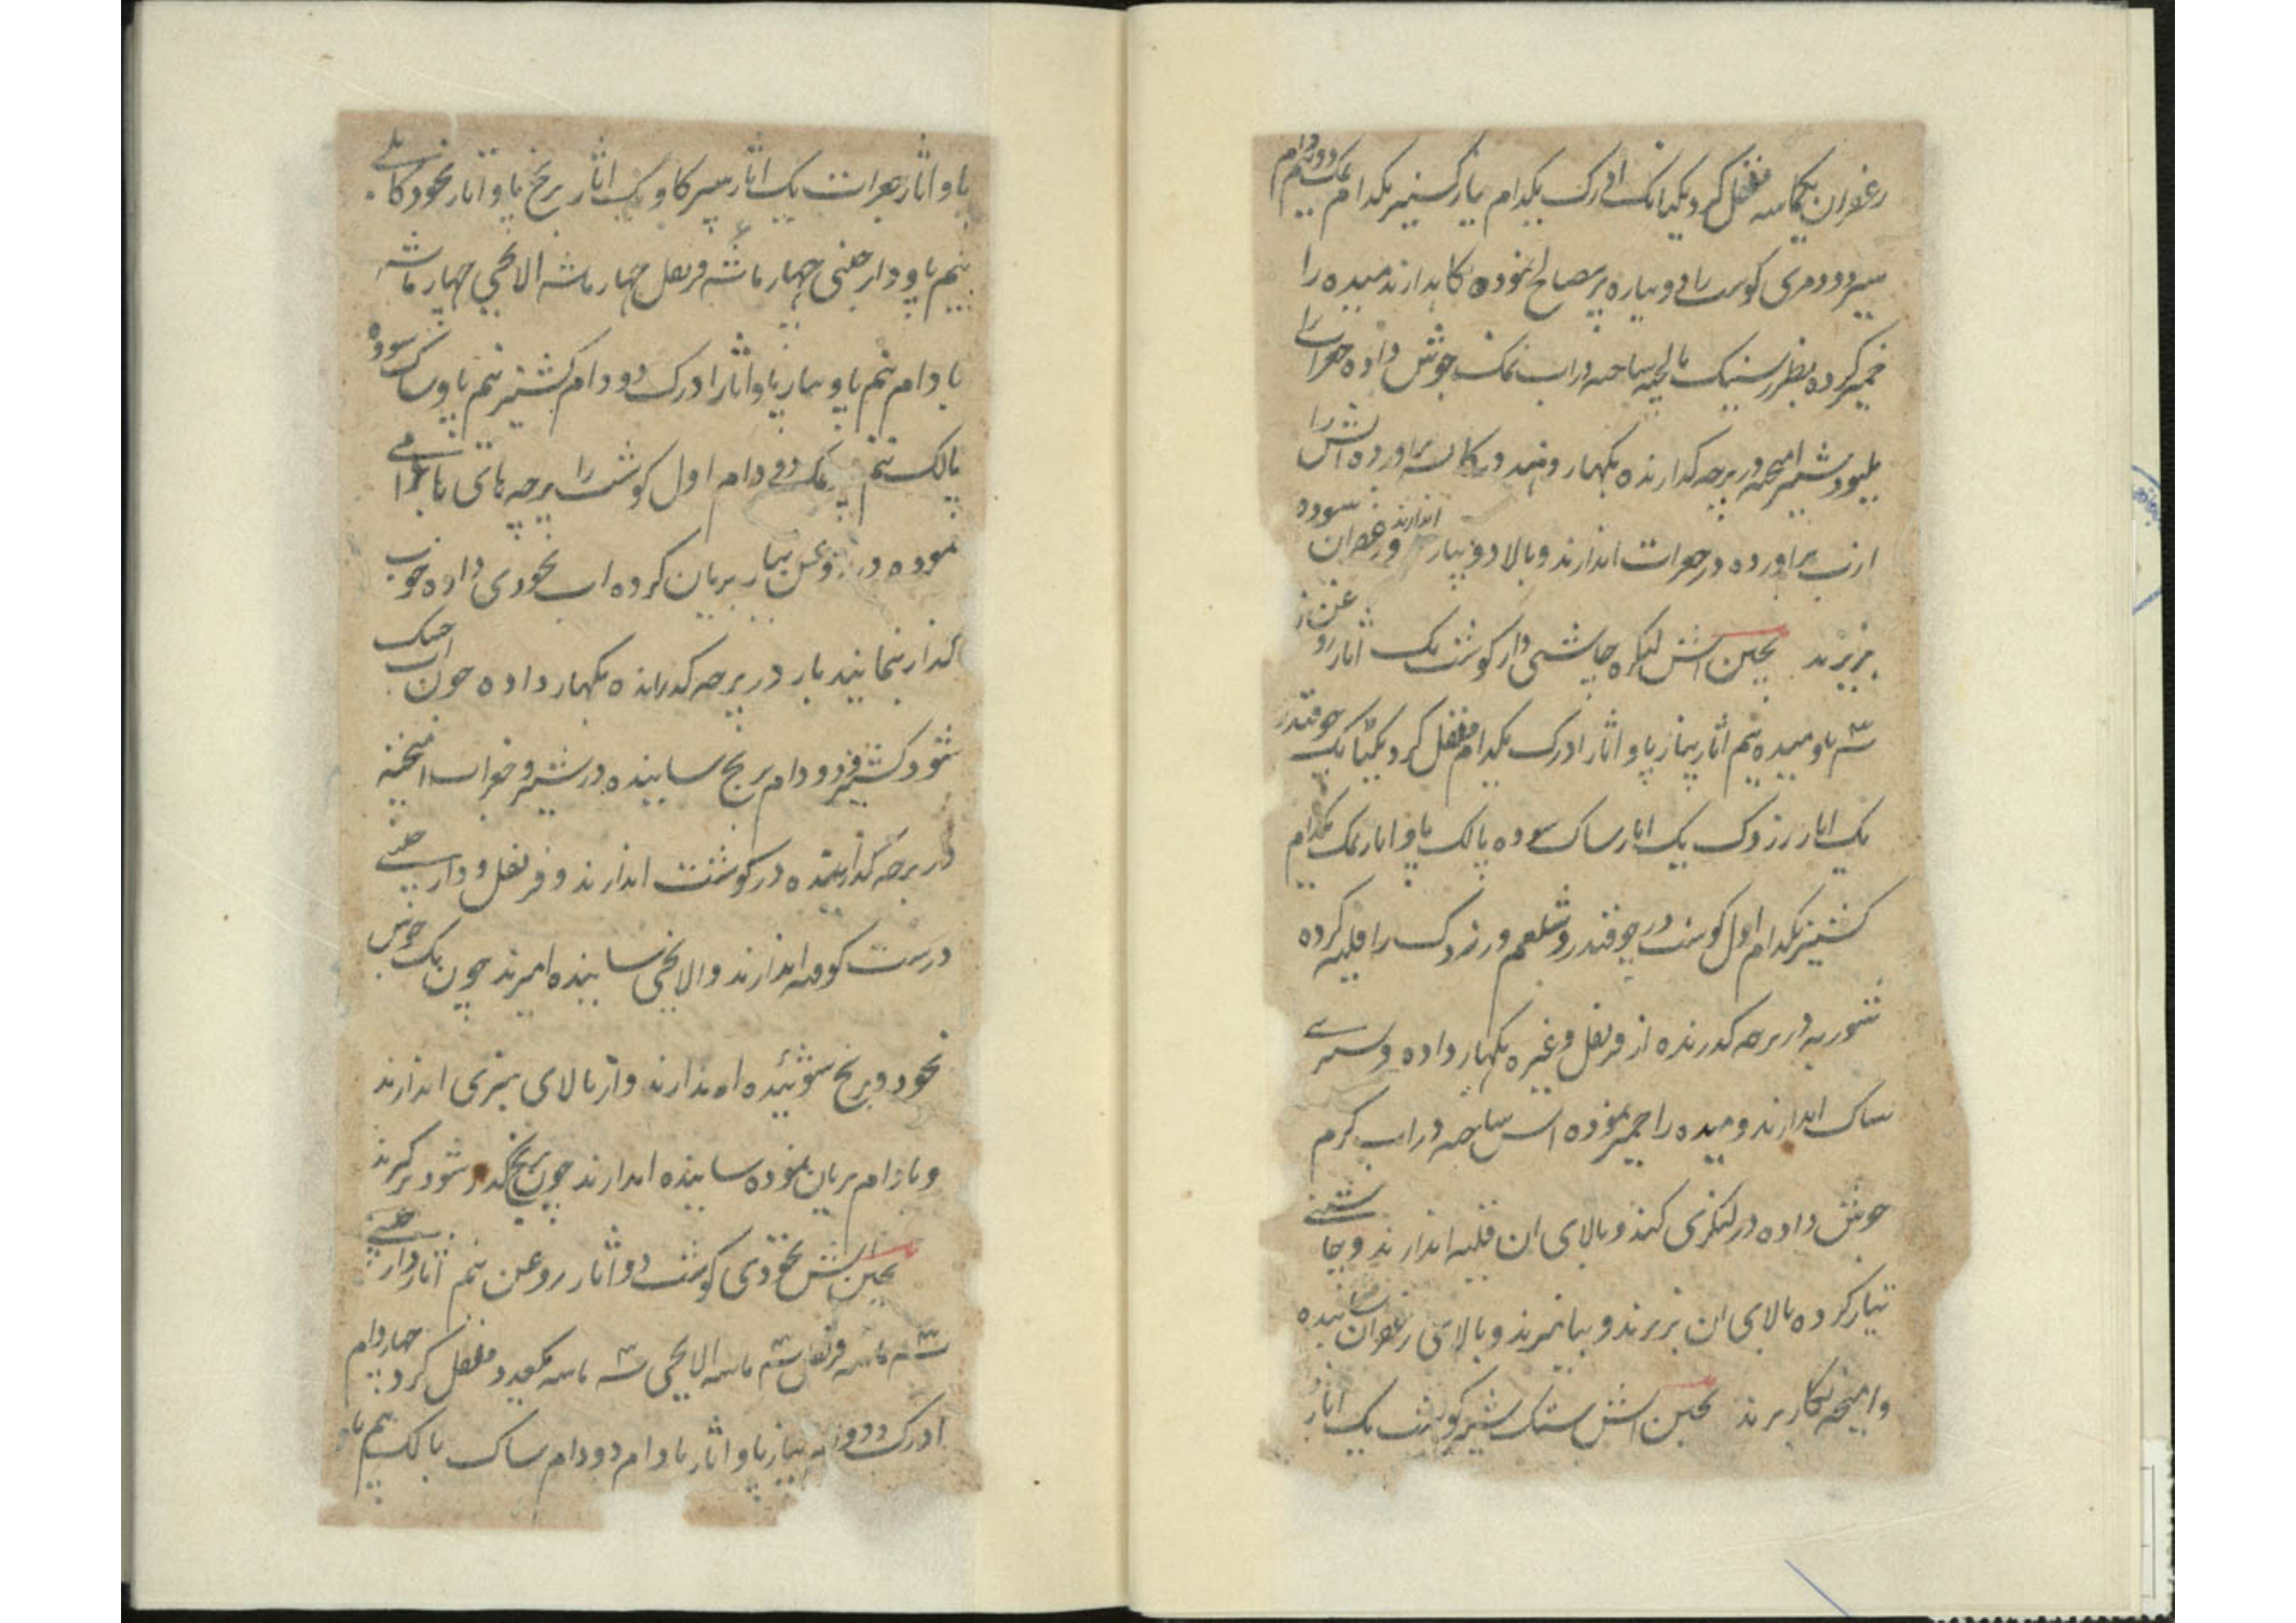 زعفران یکماسه فلفل کرد یکتانک ادرک یکدام پیاز کشنیز یکدام نمک دو دام نیم
سیر دو دمری کوشت را دو پیازه پر مصالح نموده نکاهدارند میده را
خمیر کرده بطرز سنبک مالچه ساخته در اب نمک جوش داده جغرات را
بلیمو و شیر امیخته در پارچه کذارنده بکهار دهند در کاسه براورده اش را
از اب براورده در جغرات اندازند و بالا دو پیازه اندازند و زعفران سوده
بریزند بخین اش لنکره چاشنی دار کوشت یک اثار روغن زرد
۳ پاو میده نیم اثار پیاز پاو اثار ادرک یکدام فلفل کرد یکتانک چوقندر
یک اثار زردک یک اثار ساک سوده پالک پاو اثار نمک یکدام
کشنیز یکدام اول کوشت در چوقندر و شلغم و زردک را قلیه کرده
شوربه در پارچه کذرنده از قرنفل و غیره بکهار داده و سبزی
ساک اندازند و میده را خمیر نموده اش ساخته در اب کرم
جوش داده در لنکری کنند و بالای ان قلیه اندازند و چاشنی
تیار کرده بالای ان بریزند و بیامیزند و بالای زعفران سابیده
وامیخته بکار برند بخین اش ستک شیر کوشت یک اثار
پاو اثار جغرات یک اثار سیر کاو یک اثار برنج پاو اثار نخود کابلی
نیم پاو دارچینی چهار ماشه قرنفل چهار ماشه الایچی چهار ماشه
بادام نیم پاو پیاز پاو اثار ادرک دو دام کشنیز نیم پاو ساک سوده
پالک نیم نمک دو دام اول کوشت را پرچه های با بزرامی
نموده در روغن پیاز بریان کرده اب نخودی داده خوب
کداز نمایند باز در پرچه کدرانده بکهار داده چون اب خشک
شود کشنیز و دو دام برنج سابیده در شیر و جغرات امیخته
در پرچه کذرانیده در کوشت اندازند و قرنفل و دارچینی
درست کوفته اندازند و الایچی سابیده امیزند چون یک جوش
نخود و برنج شوئیده اندازند و از بالای سبزی اندازند
و بادام بریان نموده سابیده اندازند چون برنج کداز شود بر کیرند
بخین اش نخودی کوشت دو اثار روغن نیم اثار دارچینی
۳ ماسه قرنفل ۳ ماسه الایچی ۳ ماسه فلفل کرد چهار دام
ادرک دو دام پیاز پاو اثار بادام دو دام ساک پالک نیم پاو